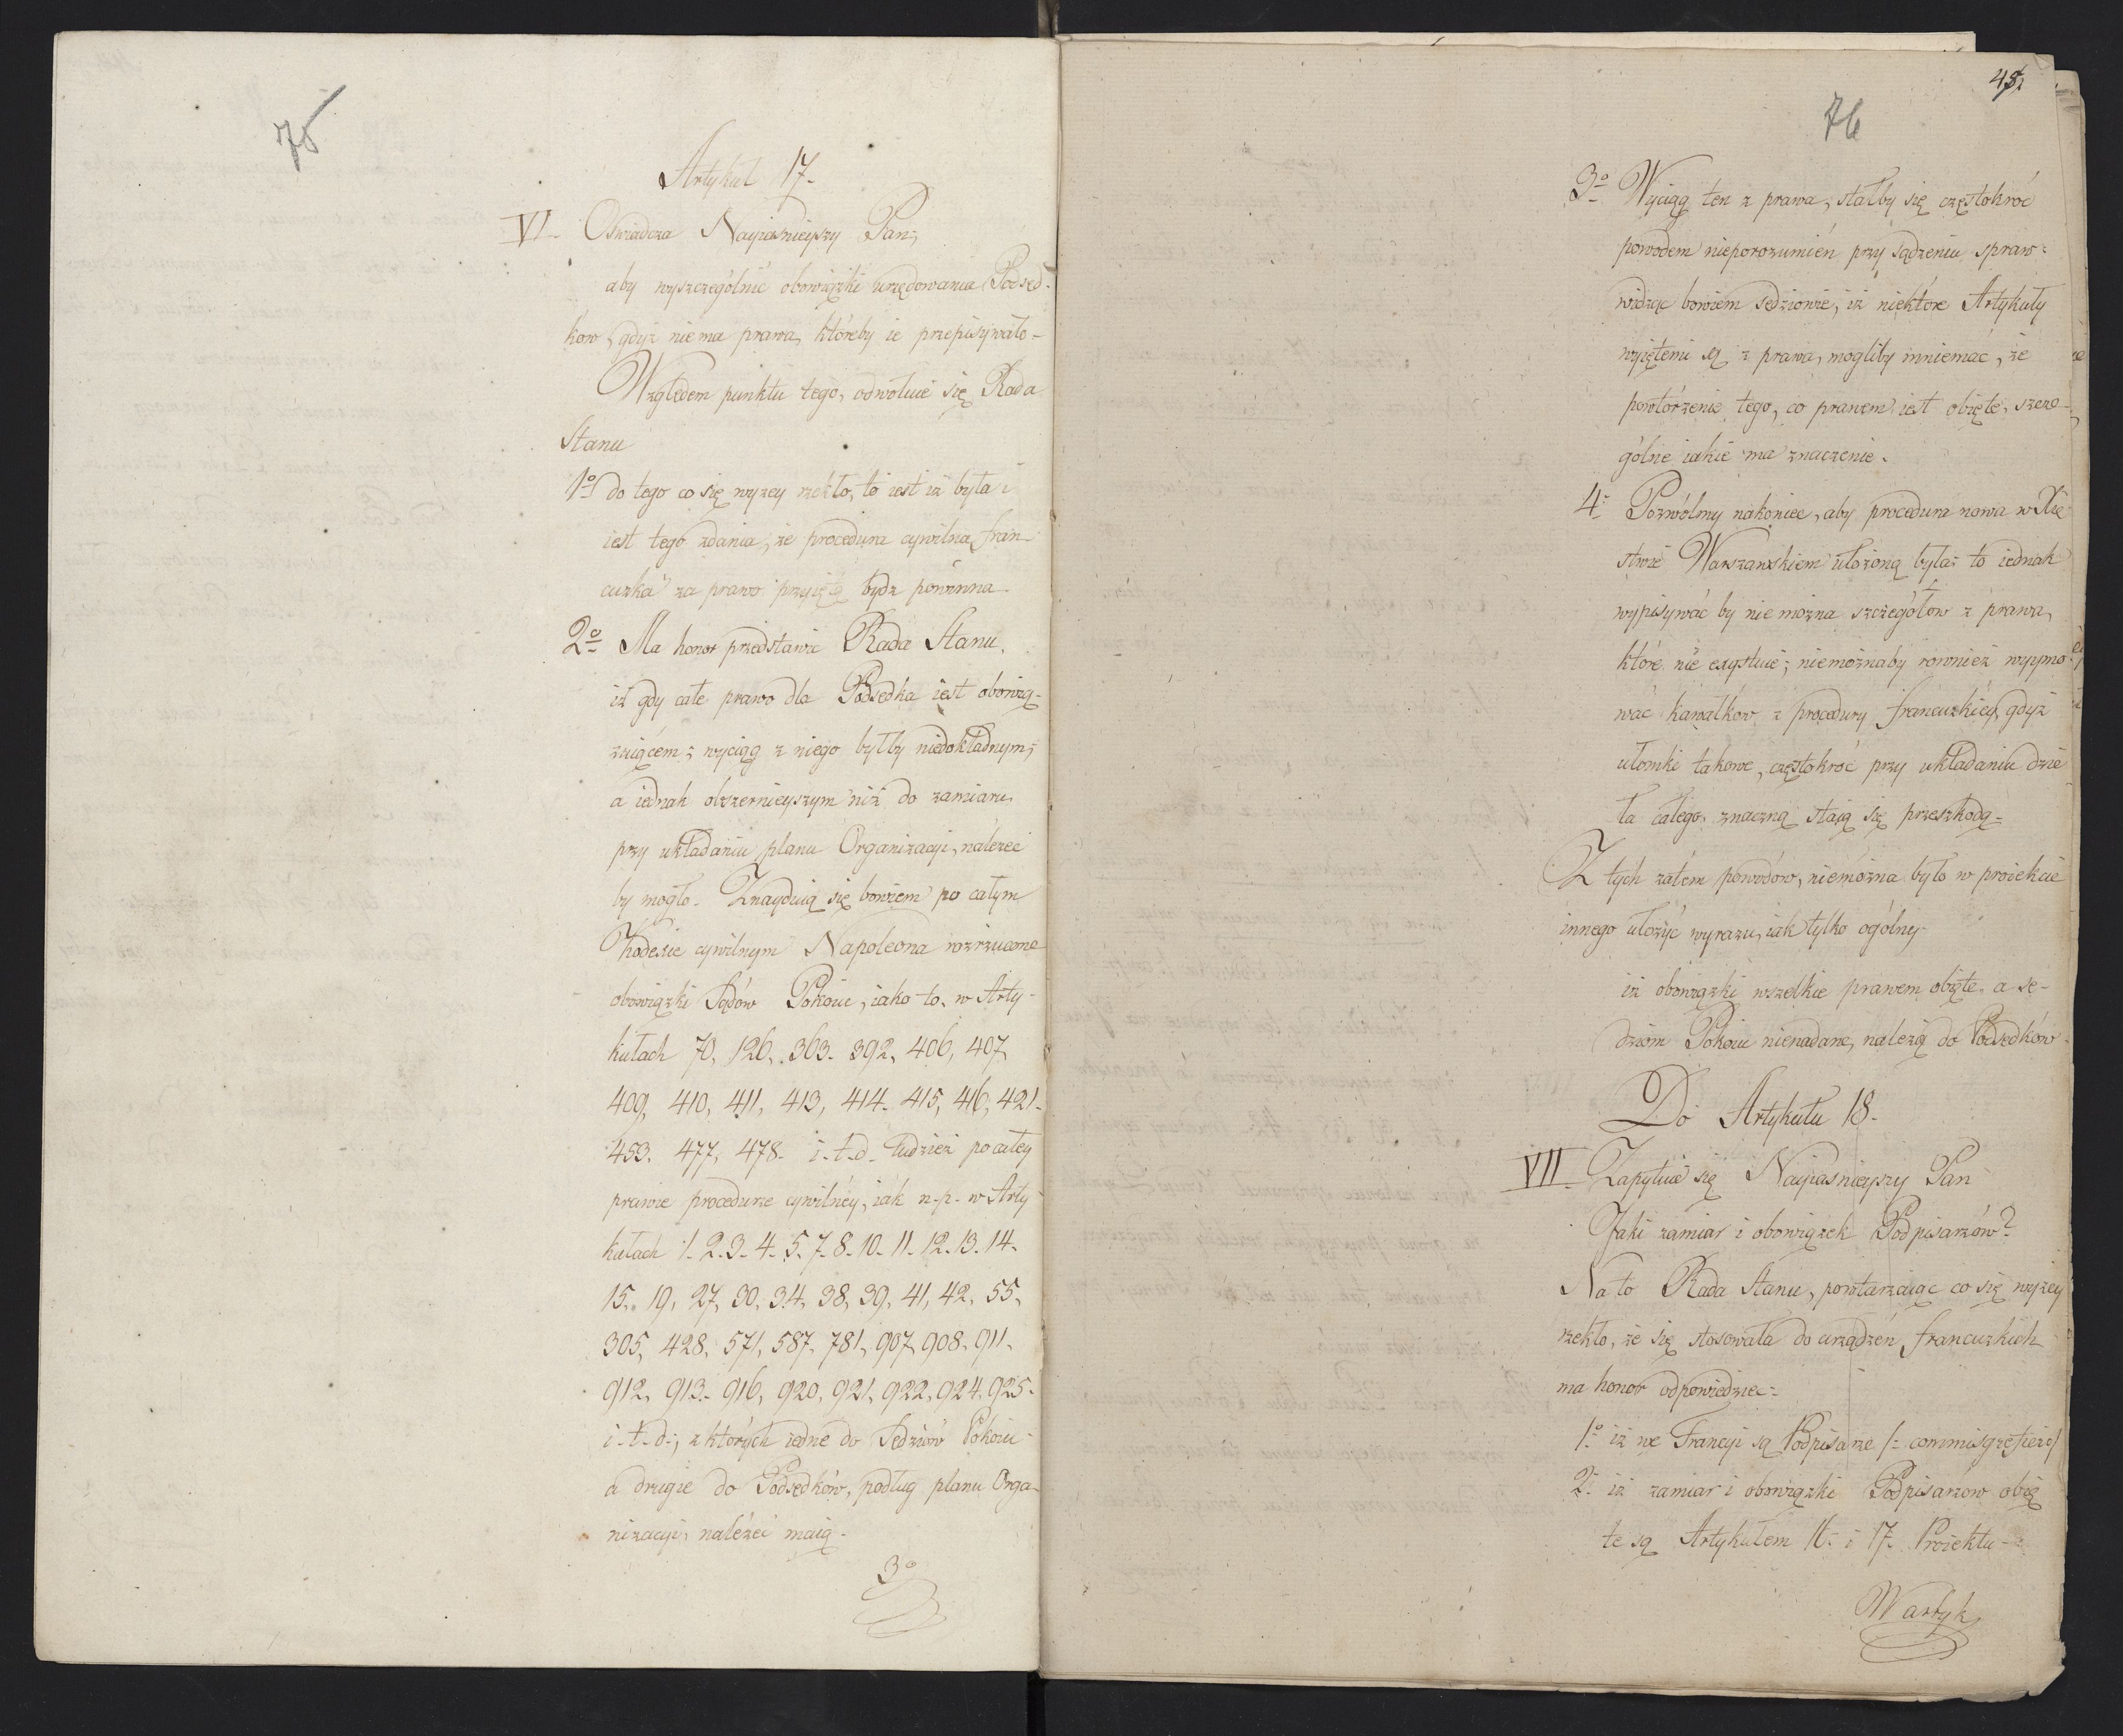 75
Artykuł 17.
VI. Oswiadcza Nayiasnieyszy Pan,
aby wyszczególnić obowiązki urzędowania Podsęd-
kow, gdyż niema prawa, któreby ie przepisywało -
Względem punktu tego, odwołuie się Rada
Stanu
1o do tego co się wyzey rzekło, to iest iż była i
iest tego zdania, że procedura cywilna fran-
cuzka za prawo przyiętą bydz powinna -
2o Ma honor przedstawić Rada Stanu,
iż gdy całe prawo dla Podsedka iest obowią-
zuiącem; wyciąg z niego byłby niedokładnym;
a iednak obszernieyszym niż do zamiaru
przy układaniu planu Organizacyi, należeć
by mogło. Znayduią się bowiem po całym
Kodexie cywilnym Napoleona rozrzucone
obowiązki Sądów Pokoiu, iako to, w Arty-
kułach 70, 126, 363. 392, 406, 407,
409, 410, 411, 413, 414. 415, 416, 421.
453. 477, 478. i. t. d. tudzież po całey
prawie procedurze cywilnéy, iak n. p. w Arty-
kułach 1. 2. 3. 4. 5. 7. 8. 10. 11. 12. 13. 14.
15. 19, 27, 30, 34, 38, 39, 41, 42, 55,
305, 428, 571, 587. 781, 907, 908. 911.
912, 913. 916, 920, 921, 922, 924. 925.
i. t. d.; z których iedne do Sędziów Pokoiu
a drugie do Podsędków, podług planu Orga-
nizacyi, należeć maią.
3o
76
3o Wyciąg ten z prawa, stałby się częstokróć
powodem nieporozumień przy sądzeniu spraw:
widząc bowiem sędziowie, iż niektóre Artykuły
wyiętemi są z prawa, mogliby mniemać, że
powtórzenie tego, co prawem iest obięte, szcze-
gólne iakie ma znaczenie.
4. Pozwólmy nakoniec, aby procedura nowa w Xię-
stwie Warszawskiem ułożoną była: to iednak
wypisywać by nie można szczegółow z prawa,
które nie exystuie; niemożnaby rownież wyymo-
wać kawałkow z procedury francuzkiéy, gdyż
ułomki takowe, częstokroć przy układaniu dzie-
ła całego, znaczną staią się przeszkodą.
Z tych zatem powodów, niemożna było w proiekcie
innego ułożyć wyrazu, iak tylko ogólny.
iż obowiązki wszelkie prawem obięte, a se-
dziom Pokoiu nienadane, należą do Podsedków.
Do Artykułu 18.
VII. Zapytuie się Nayiasnieyszy Pan
Jaki zamiar i obowiązek Podpisarzów?
Na to Rada Stanu, powtarzaiąc co się wyżey
rzekło, że się stosowała do urządzeń francuzkich
ma honor odpowiedzieć:
1.o iż we Francyi są Podpisarze /: commis greffier :/
2. iż zamiar i obowiązki Podpisarzow obię-
te są Artykułem 16. i 17. Proiektu -